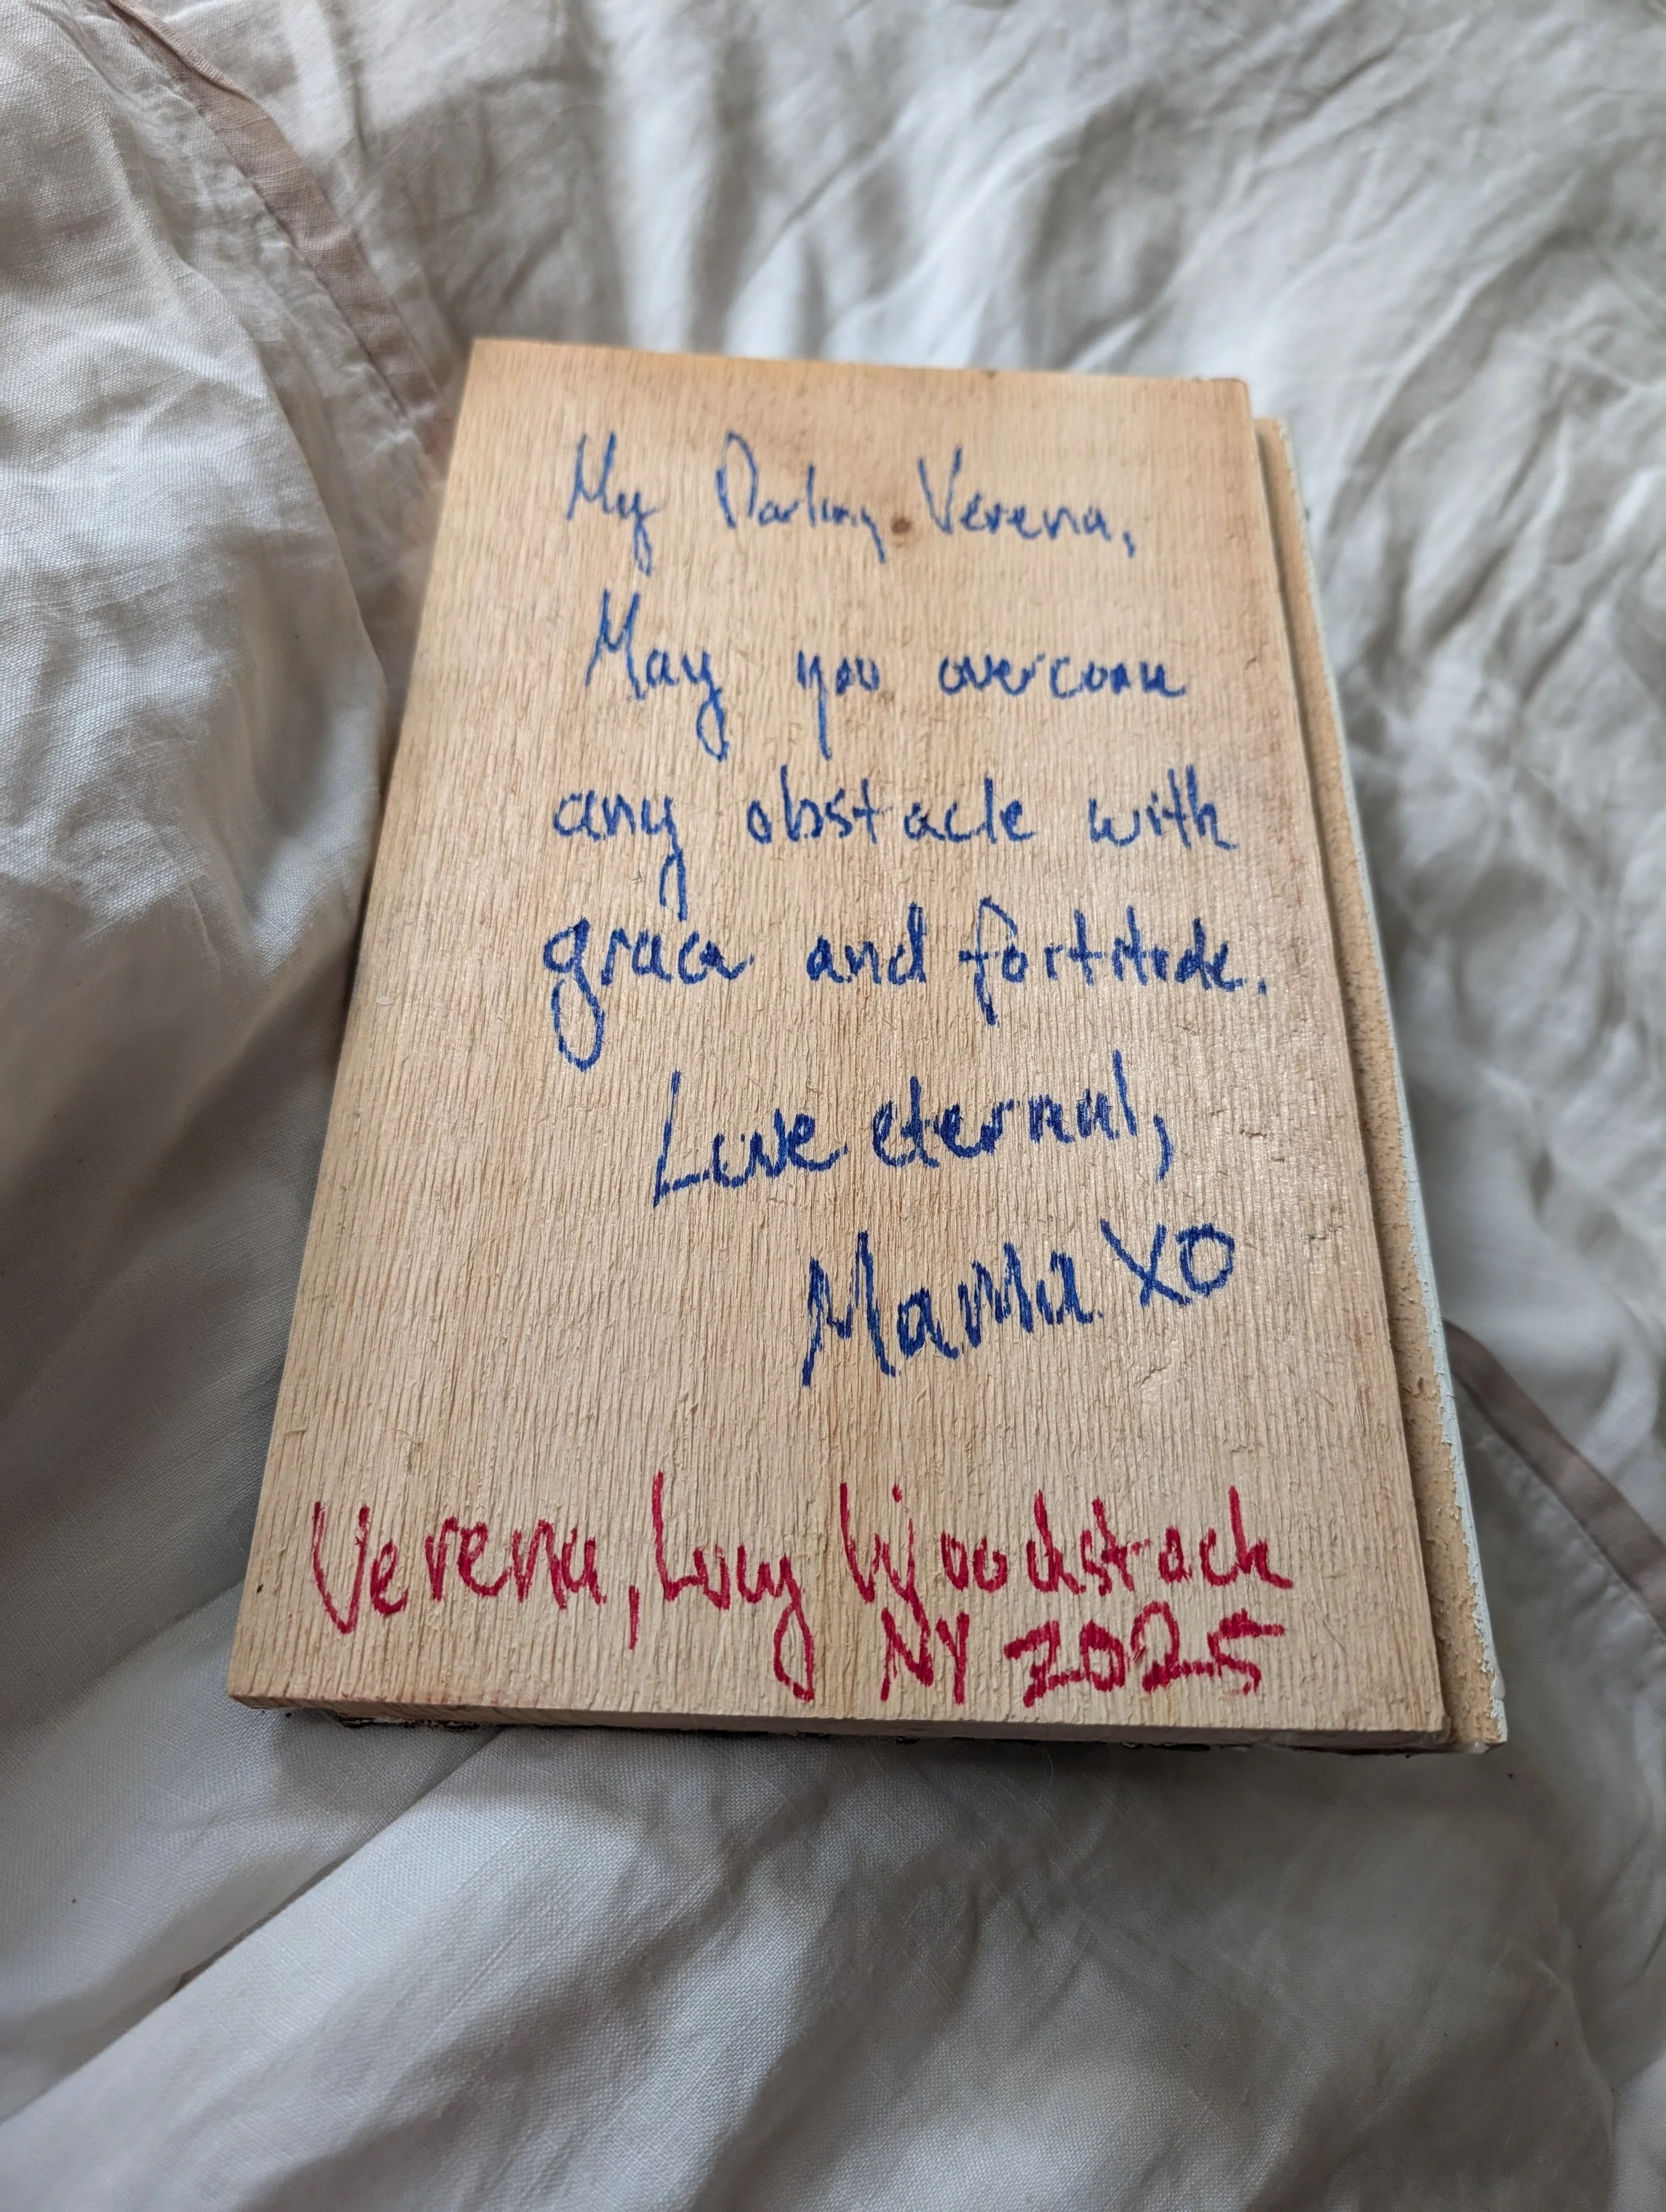 My Darling Verena,
May you overcome
any obstacle with
grace and fortitude.
Love eternal,
Mama XO
Verena, Lucy Woodstock
NY 2025